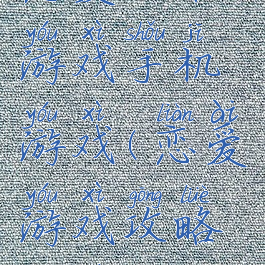 yóu xì shǒu jī
游戏手机
yóu xì liàn ài
游戏(恋爱
yóu xì gōng lüè
游戏攻略